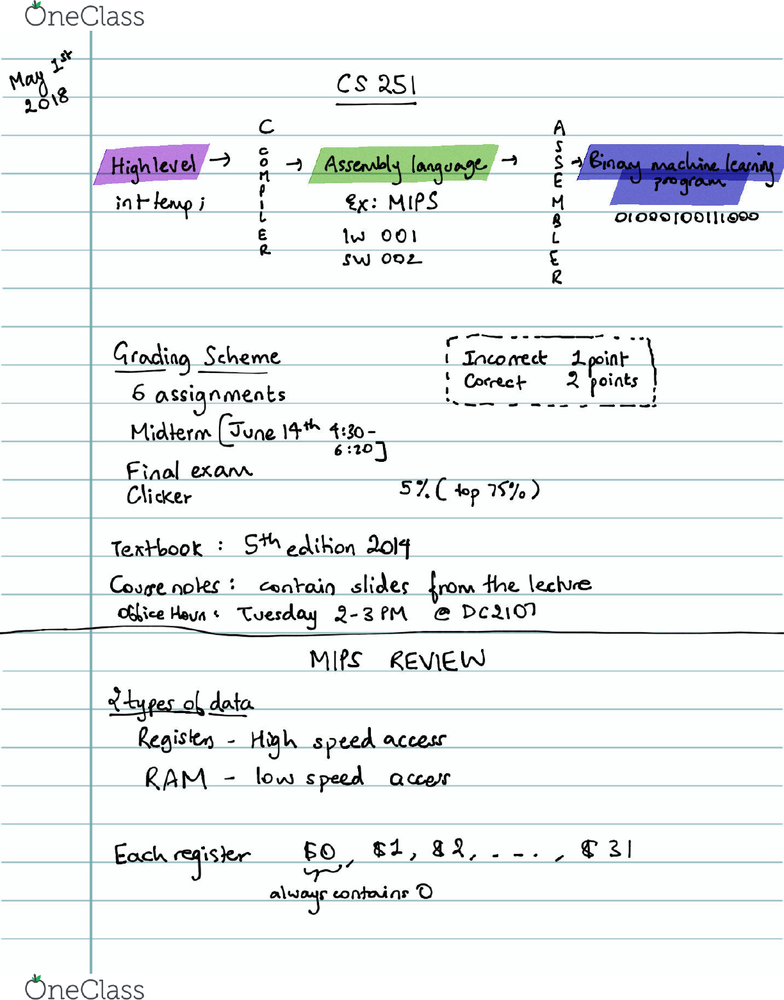 OneClass
May 1st
2018
CS 251
High level → C COMPILER → Assembly language → ASSEMBLER → Binary machine learning
program
int temp;
Ex: MIPS
01000100111000
lw 001
sw 002
Grading Scheme
Incorrect 1 point
Correct 2 points
6 assignments
Midterm [June 14th 4:30-
6:20]
Final exam
Clicker 5% (top 75%)
Textbook: 5th edition 2014
Course notes: contain slides from the lecture
Office Hour: Tuesday 2-3 PM @ DC2107
MIPS REVIEW
2 types of data
Registers - High speed access
RAM - low speed access
Each register $0, $1, $2, - - - ., $31
always contains 0
OneClass